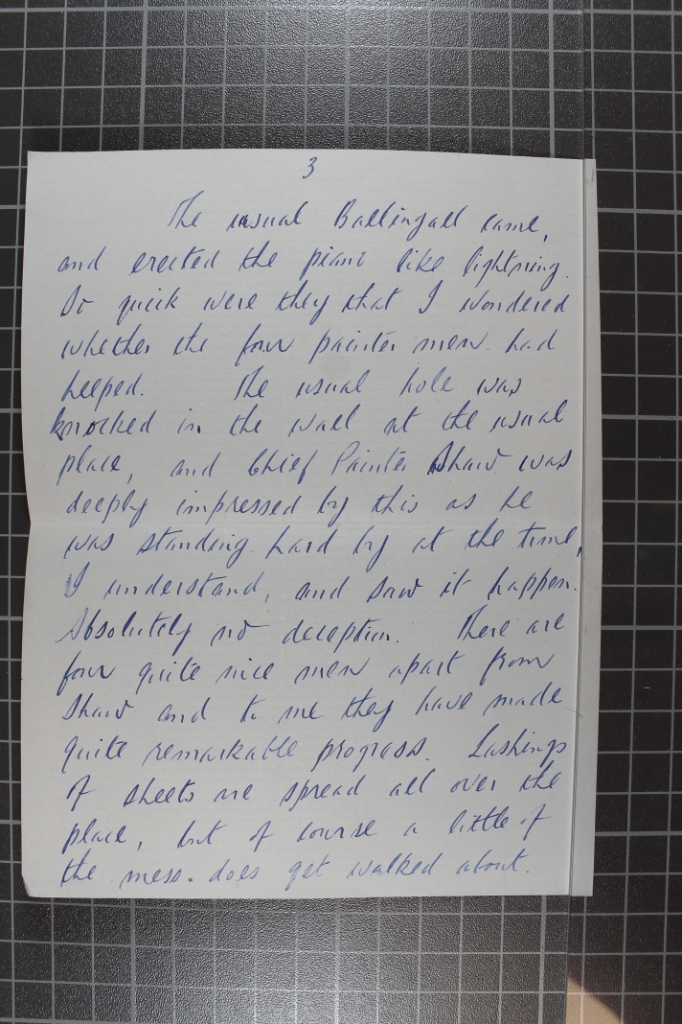 3
The usual Ballingall came,
and erected the piano like lightning.
So quick were they that I wondered
whether the four painter men had
helped. The usual hole was
knocked in the wall at the usual
place, and Chief Painter Shaw was
deeply impressed by this as he
was standing hard by at the time,
I understand, and saw it happen.
Absolutely no deception. There are
four quite nice men apart from
Shaw and to me they have made
quite remarkable progress. Lashings
of sheets are spread all over the
place, but of course a little of
the mess does get walked about.